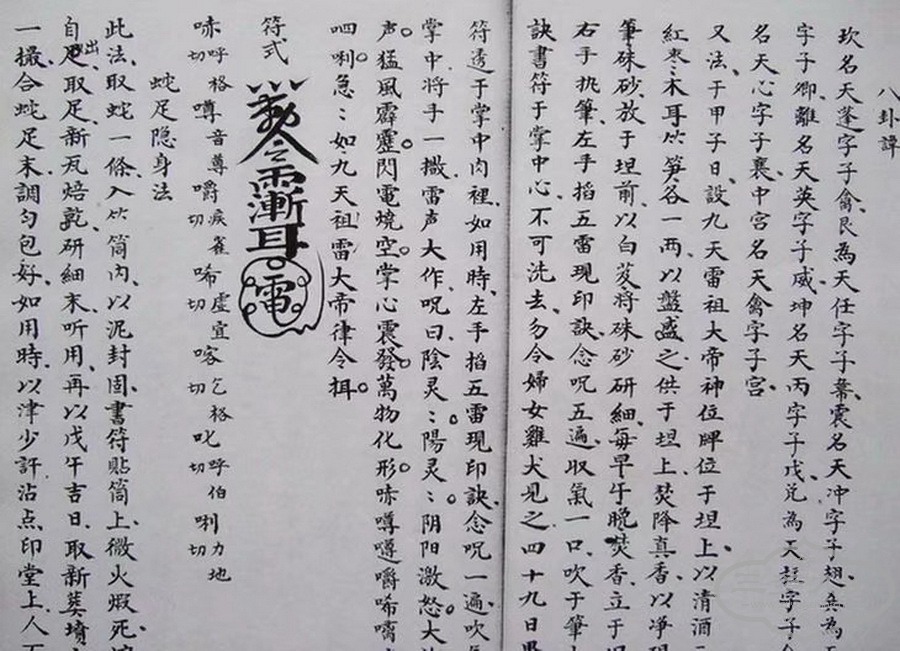 八卦譚
坎名天蓬字子禽艮為天任字子韋震名天冲字子翅巽為
字子卿離名天英字子威坤名天丙字子戊兌為天柱字子
名天心字子襄中宮名天禽字子宮
又法于甲子日設九天雷祖大帝神位牌位于坦上以清酒
紅枣木耳竹笋各一两以盤盛之供于坦上焚降真香以净
筆硃砂放于坦前以白芨將硃砂研細每早午晚焚香立于
右手扒筆左手掐五雷現印訣念呪五遍取氣一口吹于筆
訣書符于掌中心不可洗去勿令婦女雞犬見之四十九日
符透于掌中肉裡如用時左手掐五雷現印訣念呪一遍吹
掌中將手一撒雷声大作呪曰陰灵〻陽灵〻阴阳激怒大
声猛風霹靂閃電燒空掌心震發萬物化形㖇噂噂嚼唏
呬唎急〻如九天祖雷大帝律令揖
符式
令雷漸耳電
㖇呼格切噂音尊嚼疾雀切唏虚宜切喀乞格切叱呼伯切唎力地切
蛇足隐身法
此法取蛇一條入竹筒内以泥封固書符貼筒上微火煆死
自出足取足新瓦焙乾研細末听用再以戊午吉日取新葬墳
一撮合蛇足末調匀包好如用時以津少許沾点印堂上人